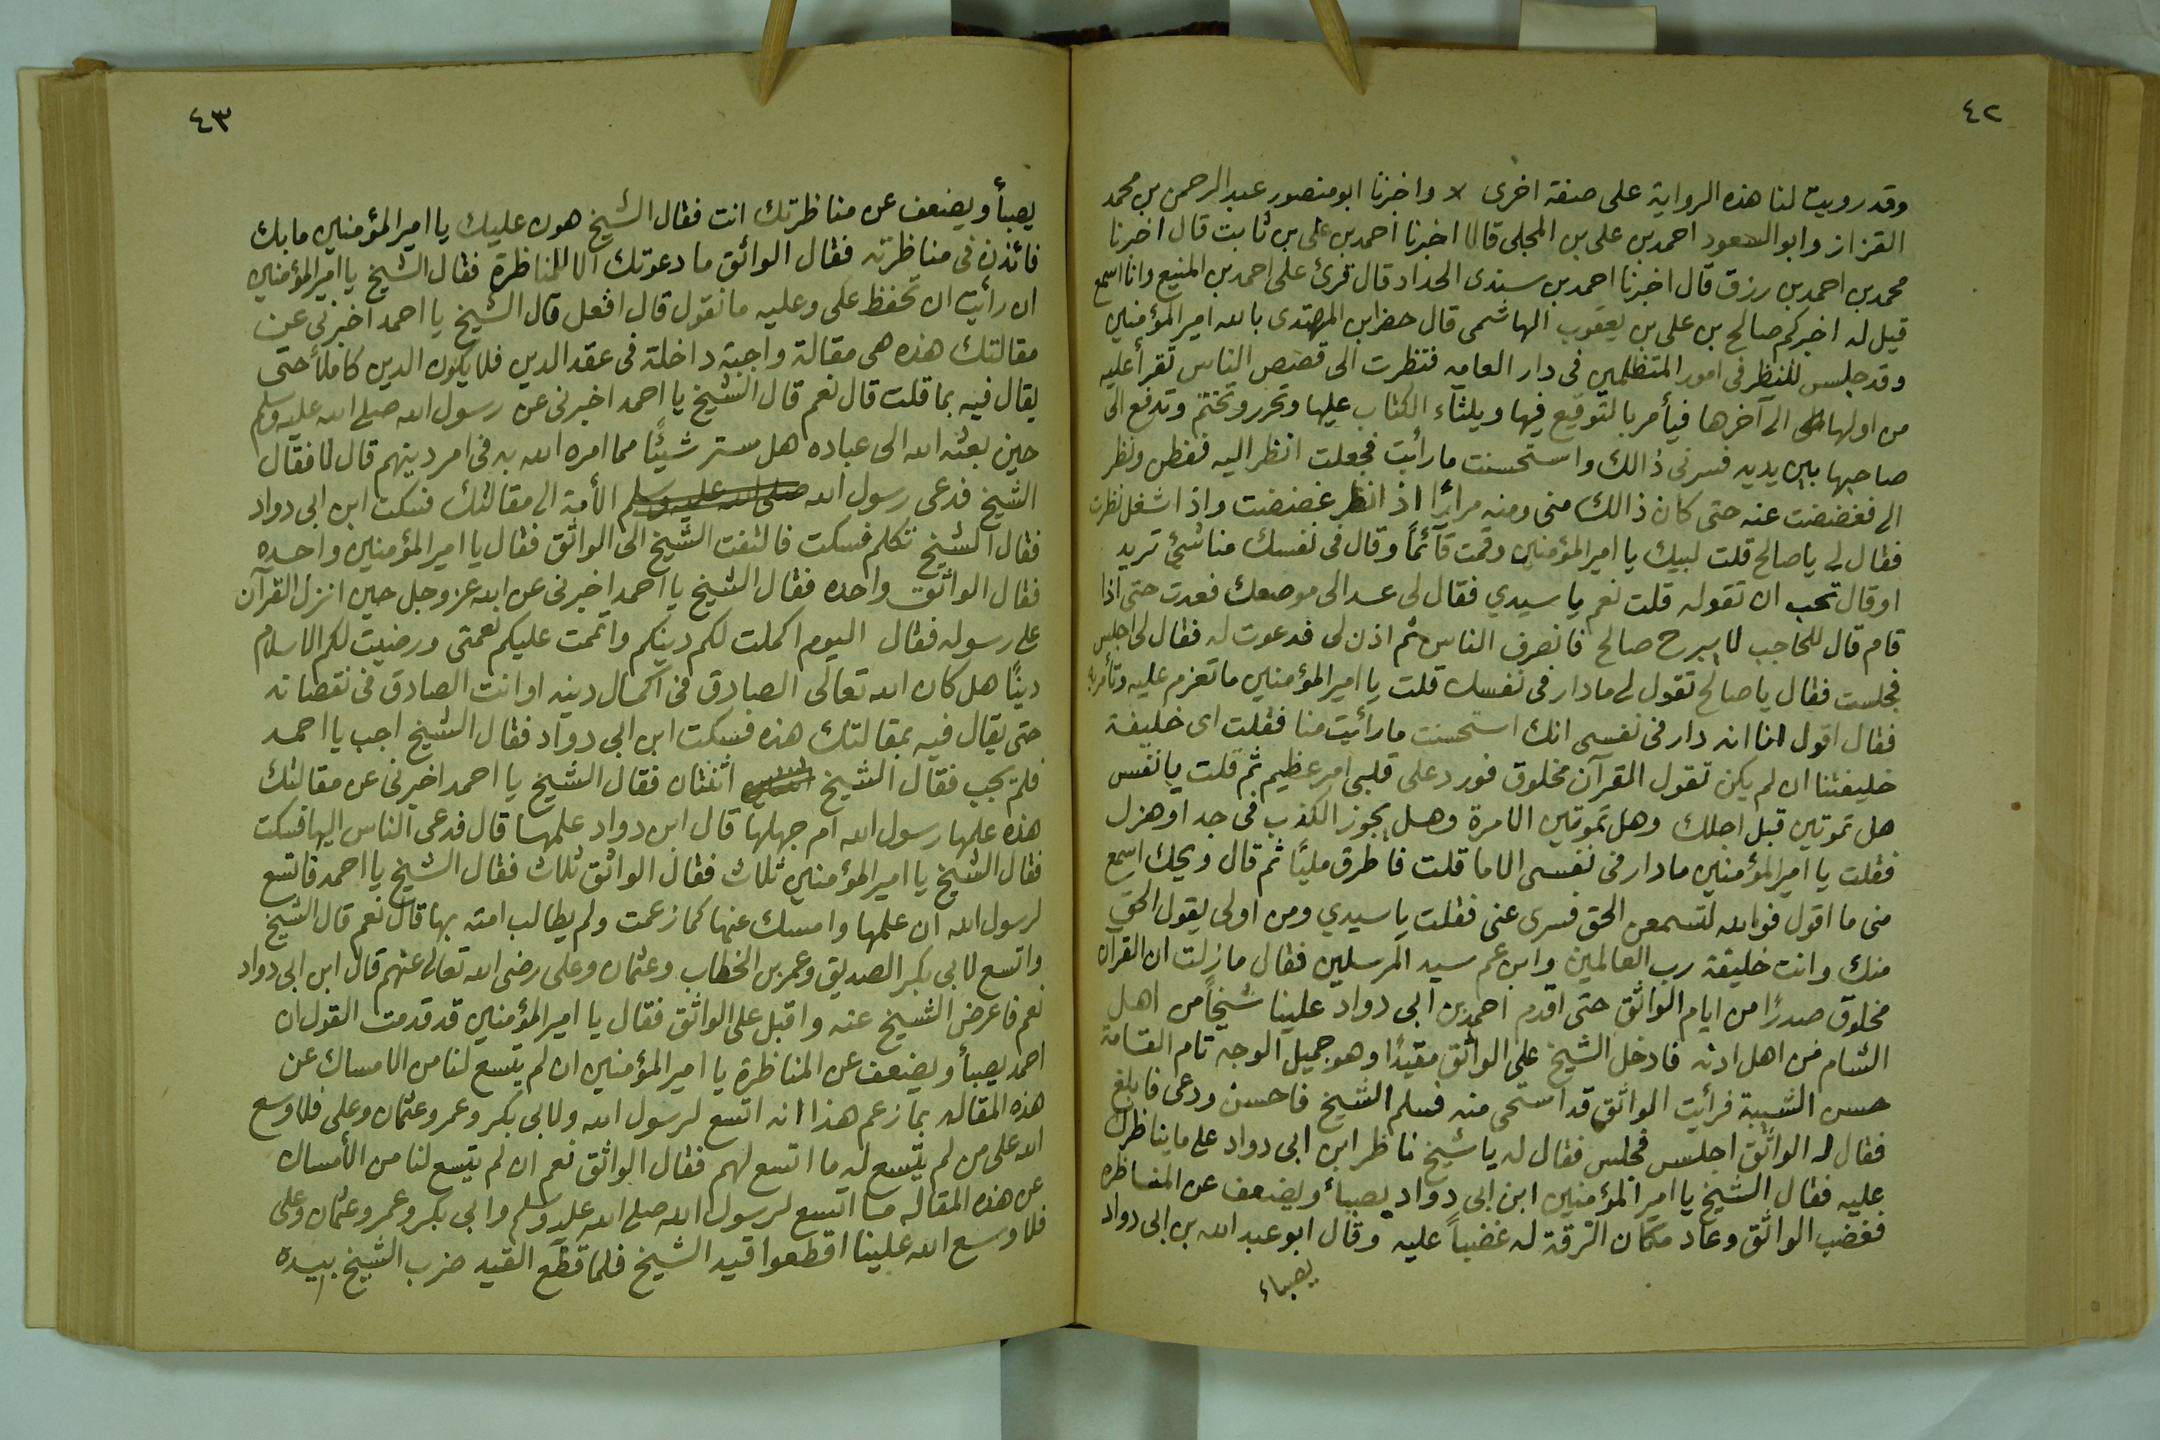 ٤٢
وقد رويت لنا هذه الرواية على صفة اخرى لا واخبرنا ابو منصور عبد الرحمن بن محمد
القزاز وابو السعود احمد بن على بن المجلى قالا اخبرنا احمد بن على بن ثابت قال اخبرنا
محمد بن احمد بن رزق قال اخبرنا احمد بن سندى الحداد قال قرئ على احمد بن المنيع وانا اسمع
قيل له اخبركم صالح بن على بن يعقوب الهاشمى قال حضر ابن المهتدى بالله امير المؤمنين
وقد جلس للنظر فى امور المتظلمين فى دار العامه فنظرت الى قصص الناس تقرأ عليه
من اولها الى آخرها فيأمر بالتوقيع فيها ويلثاء الكتاب عليها وتحرر وتختم وتدفع الى
صاحبها بين يديه فسرنى ذالك واستحسنت ما رأيت فجعلت انظر اليه ففطن ونظر
الى فغضضت عنه حتى كان ذالك منى ومنه مرارًا اذ انظر غضضت واذ اشغل نظرت
فقال لى يا صالح قلت لبيك يا امير المؤمنين وقمت قآئمًا وقال فى نفسك منا شئ تريد
اوقال تحب ان تقوله قلت نعم يا سيدي فقال لى عد الى موضعك فعدت حتى اذا
قام قال للحاجب لا يبرح صالح فانصرف الناس ثم اذن لى فدعوت له فقال لى اجلس
فجلست فقال يا صالح تقول لى ما دار فى نفسك قلت يا امير المؤمنين ما تعزم عليه وتأمر به
فقال اقول انا انه دار فى نفسى انك استحسنت ما رأيت منا فقلت اى خليفة
خليفتنا ان لم يكن تقول القرآن مخلوق فورد على قلبى امر عظيم ثم قلت يا نفس
هل تموتين قبل اجلك وهل تموتين الا مرة وهل يجوز الكذب فى جد او هزل
فقلت يا امير المؤمنين ما دار فى نفسى الا ما قلت فاطرق مليًا ثم قال ويحك اسمع
منى ما اقول فوالله لتسمعن الحق فسرى عنى فقلت يا سيدي ومن اولى يقول الحق
منك وانت خليفة رب العالمين وابن عم سيد المرسلين فقال ما زلت ان القران
مخلوق صدرًا من ايام الواثق حتى اقدم احمد بن ابى دواد علينا شيخًا من اهل
الشام من اهل اذنه فادخل الشيخ على الواثق مقيدًا وهو جميل الوجه تام القامة
حسن الشيبة فرأيت الواثق قد استحى منه فسلم الشيخ فاحسن ودعى فابلغ
فقال له الواثق اجلس فجلس فقال له يا شيخ ناظر ابن ابى دواد على ما يناظرك
عليه فقال الشيخ يا امير المؤمنين ابن ابى دواد يصبأ ويضعف عن المناظره
فغضب الواثق وعاد مكان الرقة له غضباً عليه وقال ابو عبد الله بن ابى دواد
يصباء
٤٣
يصبأ ويضعف عن مناظرتك انت فقال الشيخ هون عليك يا امير المؤمنين ما بك
فائذن فى مناظرته فقال الواثق ما دعوتك الا للمناظرة فقال الشيخ يا امير المؤمنين
ان رأيت ان تحفظ على وعليه ما نقول قال افعل قال الشيخ يا احمد اخبرنى عن
مقالتك هذه هى مقالة واجبة داخلة فى عقد الدين فلا يكون الدين كاملاً حتى
يقال فيه بما قلت قال نعم قال الشيخ يا احمد اخبرنى عن رسول الله صلى الله عليه وسلم
حين بعثه الله الى عباده هل ستر شيئًا مما امره الله به فى امر دينهم قال لا فقال
الشيخ فدعى رسول الله صلى الله عليه وسلم الأمة الى مقالتك فسكت ابن ابى دواد
فقال الشيخ تكلم فسكت فالتفت الشيخ الى الواثق فقال يا امير المؤمنين واحده
فقال الواثق واحده فقال الشيخ يا احمد اخبرنى عن الله عز وجل حين انزل القرآن
على رسوله فقال اليوم اكملت لكم دينكم واتممت عليكم نعمتى ورضيت لكم الاسلام
دينًا هل كان الله تعالى الصادق فى اكمال دينه او انت الصادق فى نقصانه
حتى يقال فيه بمقالتك هذه فسكت ابن ابى دواد فقال الشيخ اجب يا احمد
فلم يجب فقال الشيخ اثنتان فقال الشيخ يا احمد اخبرنى عن مقالتك
هذه علمها رسول الله ام جهلها قال ابن دواد علمها قال فدعى الناس اليها فسكت
فقال الشيخ يا امير المؤمنين ثلاث فقال الواثق ثلاث فقال الشيخ يا احمد فاتسع
لرسول الله ان علمها وامسك عنها كما زعمت ولم يطالب امته بها قال نعم قال الشيخ
واتسع لابى بكر الصديق وعمر بن الخطاب وعثمان وعلى رضى الله تعالى عنهم قال ابن ابى دواد
نعم فاعرض الشيخ عنه واقبل على الواثق فقال يا امير المؤمنين قد قدمت القول ان
احمد يصبأ ويضعف عن المناظرة يا امير المؤمنين ان لم يتسع لنا من الامساك عن
هذه المقاله بما زعم هذا انه اتسع لرسول الله ولابى بكر وعمر وعثمان وعلى فلا وسع
الله على من لم يتسع له ما اتسع لهم فقال الواثق نعم ان لم يتسع لنا من الأمساك
عن هذه المقاله ما اتسع لرسول الله صلى الله عليه وسلم وابى بكر وعمر وعثمان وعلى
فلا وسع الله علينا اقطعوا قيد الشيخ فلما قطع القيد ضرب الشيخ بيده